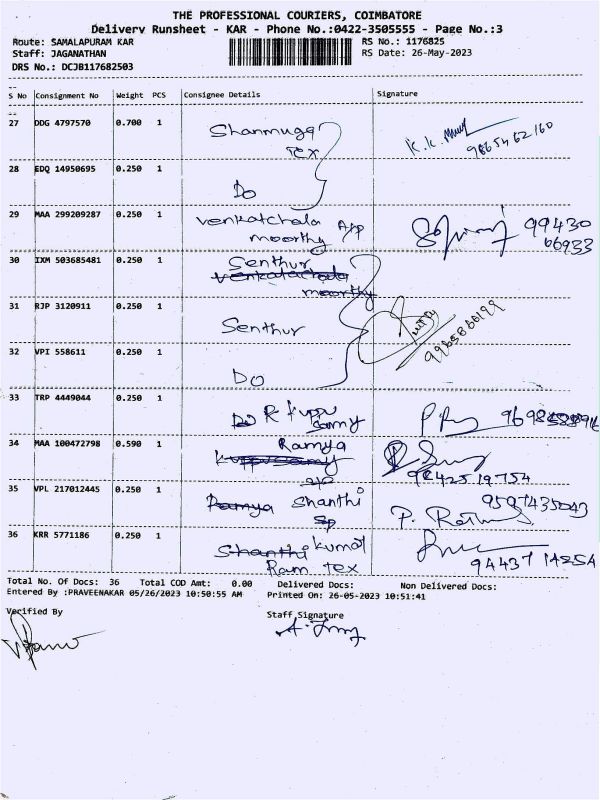 THE PROFESSIONAL COURIERS, COIMBATORE
Delivery Runsheet - KAR - Phone No.:0422-3505555 - Page No.:3
Route: SAMALAPURAM KAR RS No.: 1176825
Staff: JAGANATHAN RS Date: 26-May-2023
DRS No.: DCJB117682503
S No Consignment No Weight PCS Consignee Details Signature
27 DDG 4797570 0.700 1 Shanmuga
Tex 9865462160
28 EDQ 14950695 0.250 1
Do
29 MAA 299209287 0.250 1 venkatchala App 99430
moorthy 66933
30 IXM 503685481 0.250 1 Senthur
venkatachala
moorthy
31 RJP 3120911 0.250 1 Senthur
32 VPI 558611 0.250 1
Do
33 TRP 4449044 0.250 1 Do R Kuppu
samy
34 MAA 100472798 0.590 1 Ramya
Kuppusamy
35 VPL 217012445 0.250 1 Ramya Shanthi
36 KRR 5771186 0.250 1 Shanthi Kumar
Ram Tex
Total No. Of Docs: 36 Total COD Amt: 0.00 Delivered Docs: Non Delivered Docs:
Entered By :PRAVEENAKAR 05/26/2023 10:50:55 AM Printed On: 26-05-2023 10:51:41
Verified By Staff Signature